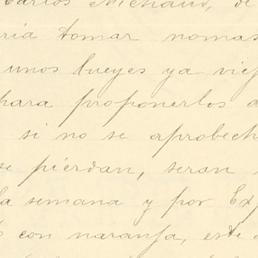 Carlos Michaud, de
ria tomar nomas
unos bueyes ya viej
para proponerlos a
si no se aprobech
se pierdan, seran
la semana y por Exp
con naranja, este